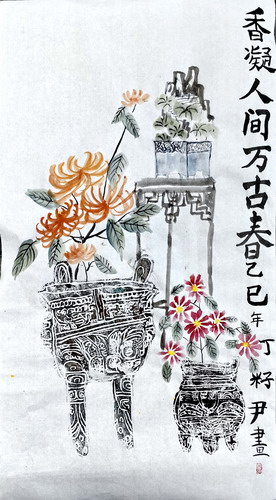 香凝人间万古春乙巳年丁籽尹畫